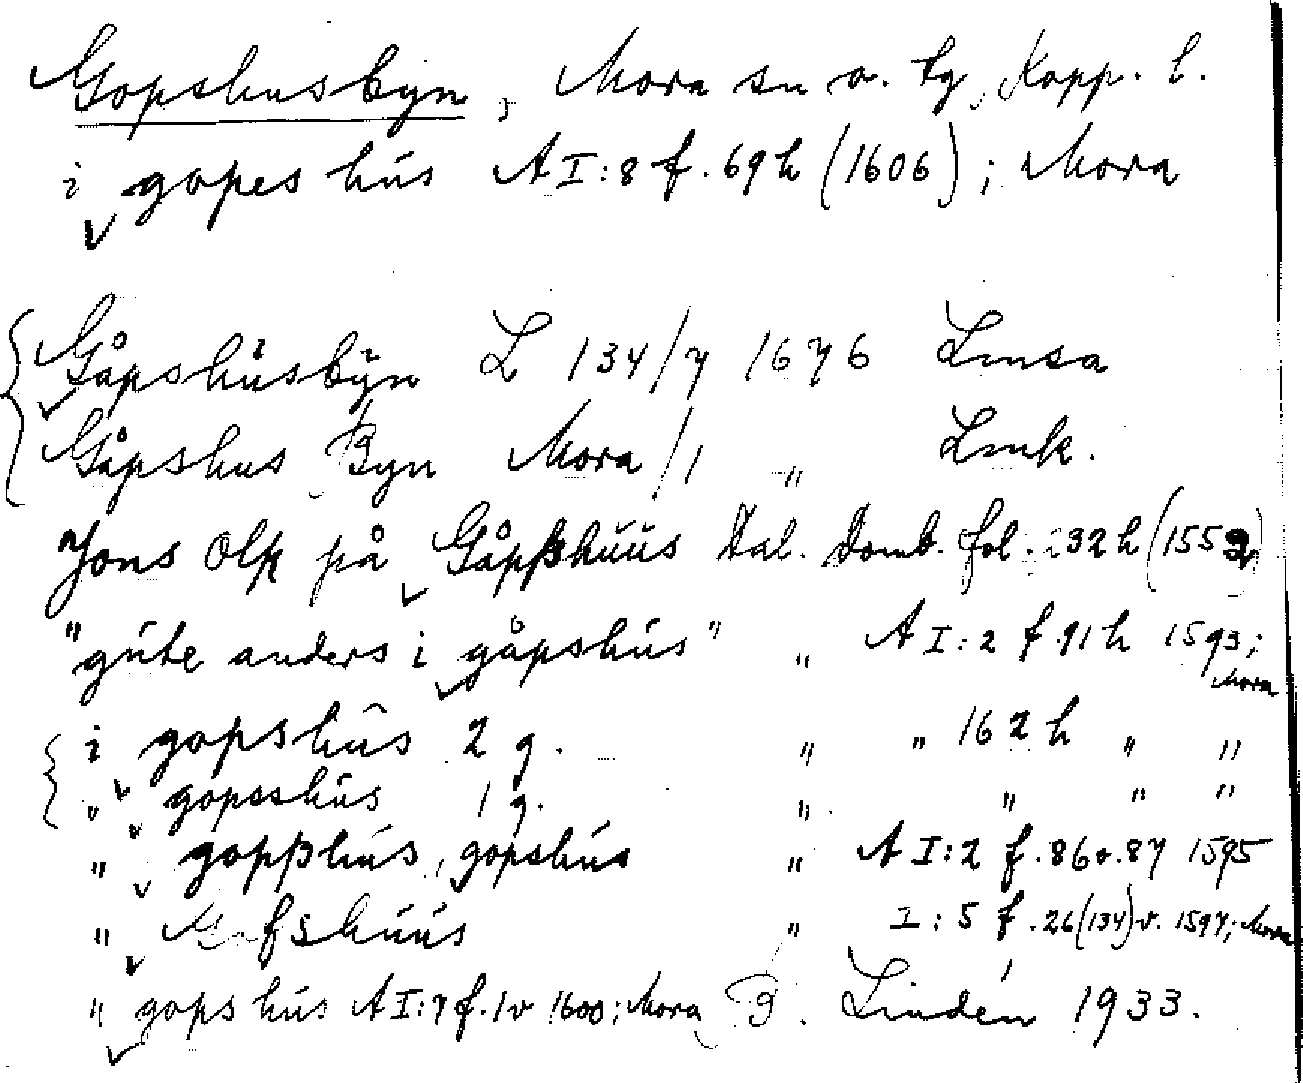 Gopshusbyn, Mora sn o. tg, Kopp. l.
i gopes hús A I:8 f. 69 h (1606); Mora
Gåpshúsbÿn L 134/7 1676 Lmsa
Gåpshus Byn Mora/1 " Lmk.
Jons Olß på Gåpßhúús Dal. Domb. fol. 232 h (1559)
"gúte anders i gåpshús" " A I:2 f. 91 h 1593; Mora
i gopshûs 2 g. " " 162 h " "
" gopsshús 1 g. " " " "
" gopßhús, gopshús " A I:2 f. 86 o. 87 1595
" Gofshúús " I:5 f. 26(134) v. 1597; Mora
" gopshús A I:7 f. 1 v 1600; Mora B. Lindén 1933.